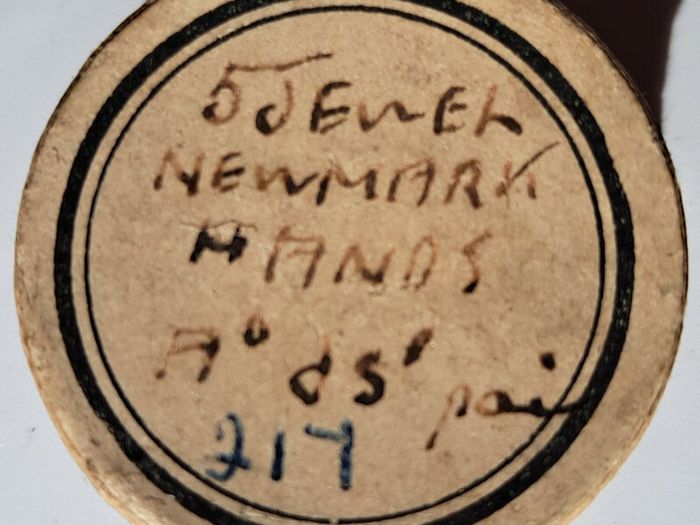 5 JEWEL
NEWMARK
HANDS
pair
217